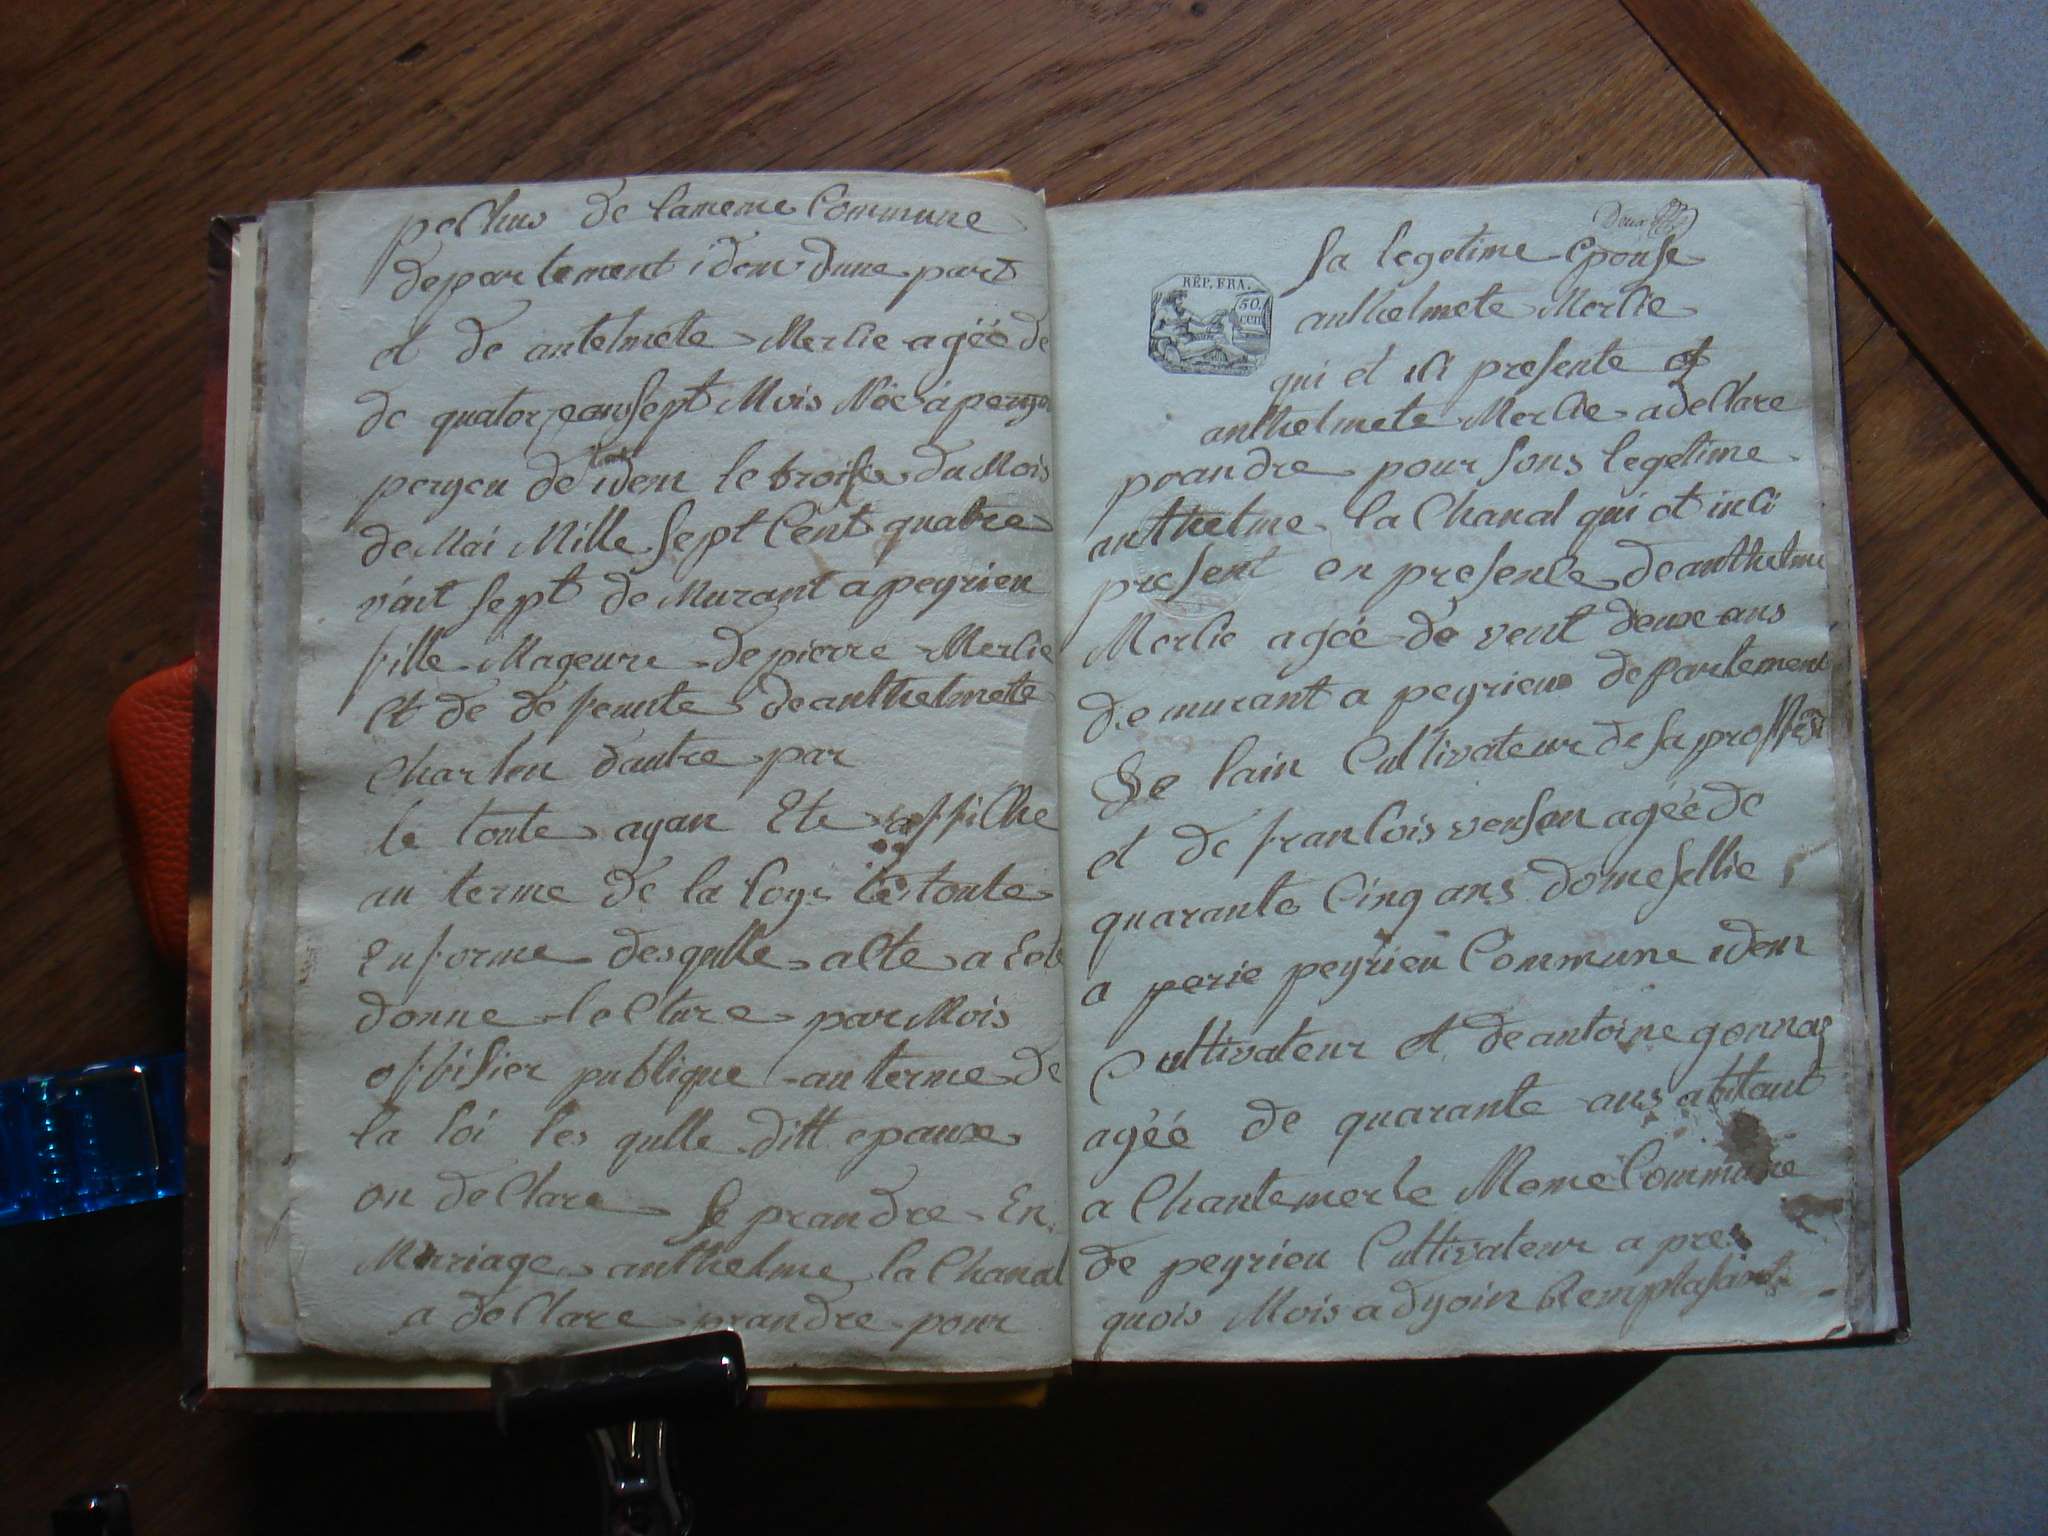 pechus de lameme Commune
departement idem dune part
et de antelmete Merlie agéé de
de quatorze ans sept Mois Néé a
peryeu de idem le troise du Mois
de Mai Mille Sept Cent quatre
vait sept de Murant a peyrieu
fille Mageure de pierre Merlie
Et de defeunte de anthelmete
Charlen dautre par
le toute ayan Ete affiche
au terme de la loye le toute
En forme desqulle acte a Eté
donne lecture par Mois
offisier publique au terme de
la loi les qulle ditt epause
on declare Se prandre En
Mariage anthelme la Chanal
a declare prandre pour
Sa legetime Epouse
RÉP. FRA.
50 cen
anthelmete Merlie
qui et isi presente et
anthelmete Merlie a declare
prandre pour sons legetime
anthelme la Chanal qui et inci
present en presence de anthelme
Merlie agéé de vent deuxe ans
de murant a peyrieu departement
De lain Cultivateur de sa
et de francois venson agéé de
quarante Cinq ans domesellie
a perie peyrieu Commune idem
Cultivateur et de antoine gonnas
agéé de quarante ans abitant
a Chantemerle Meme Commune
de peyrieu Cultivateur a pres
quois Mois adyoin Remplasant